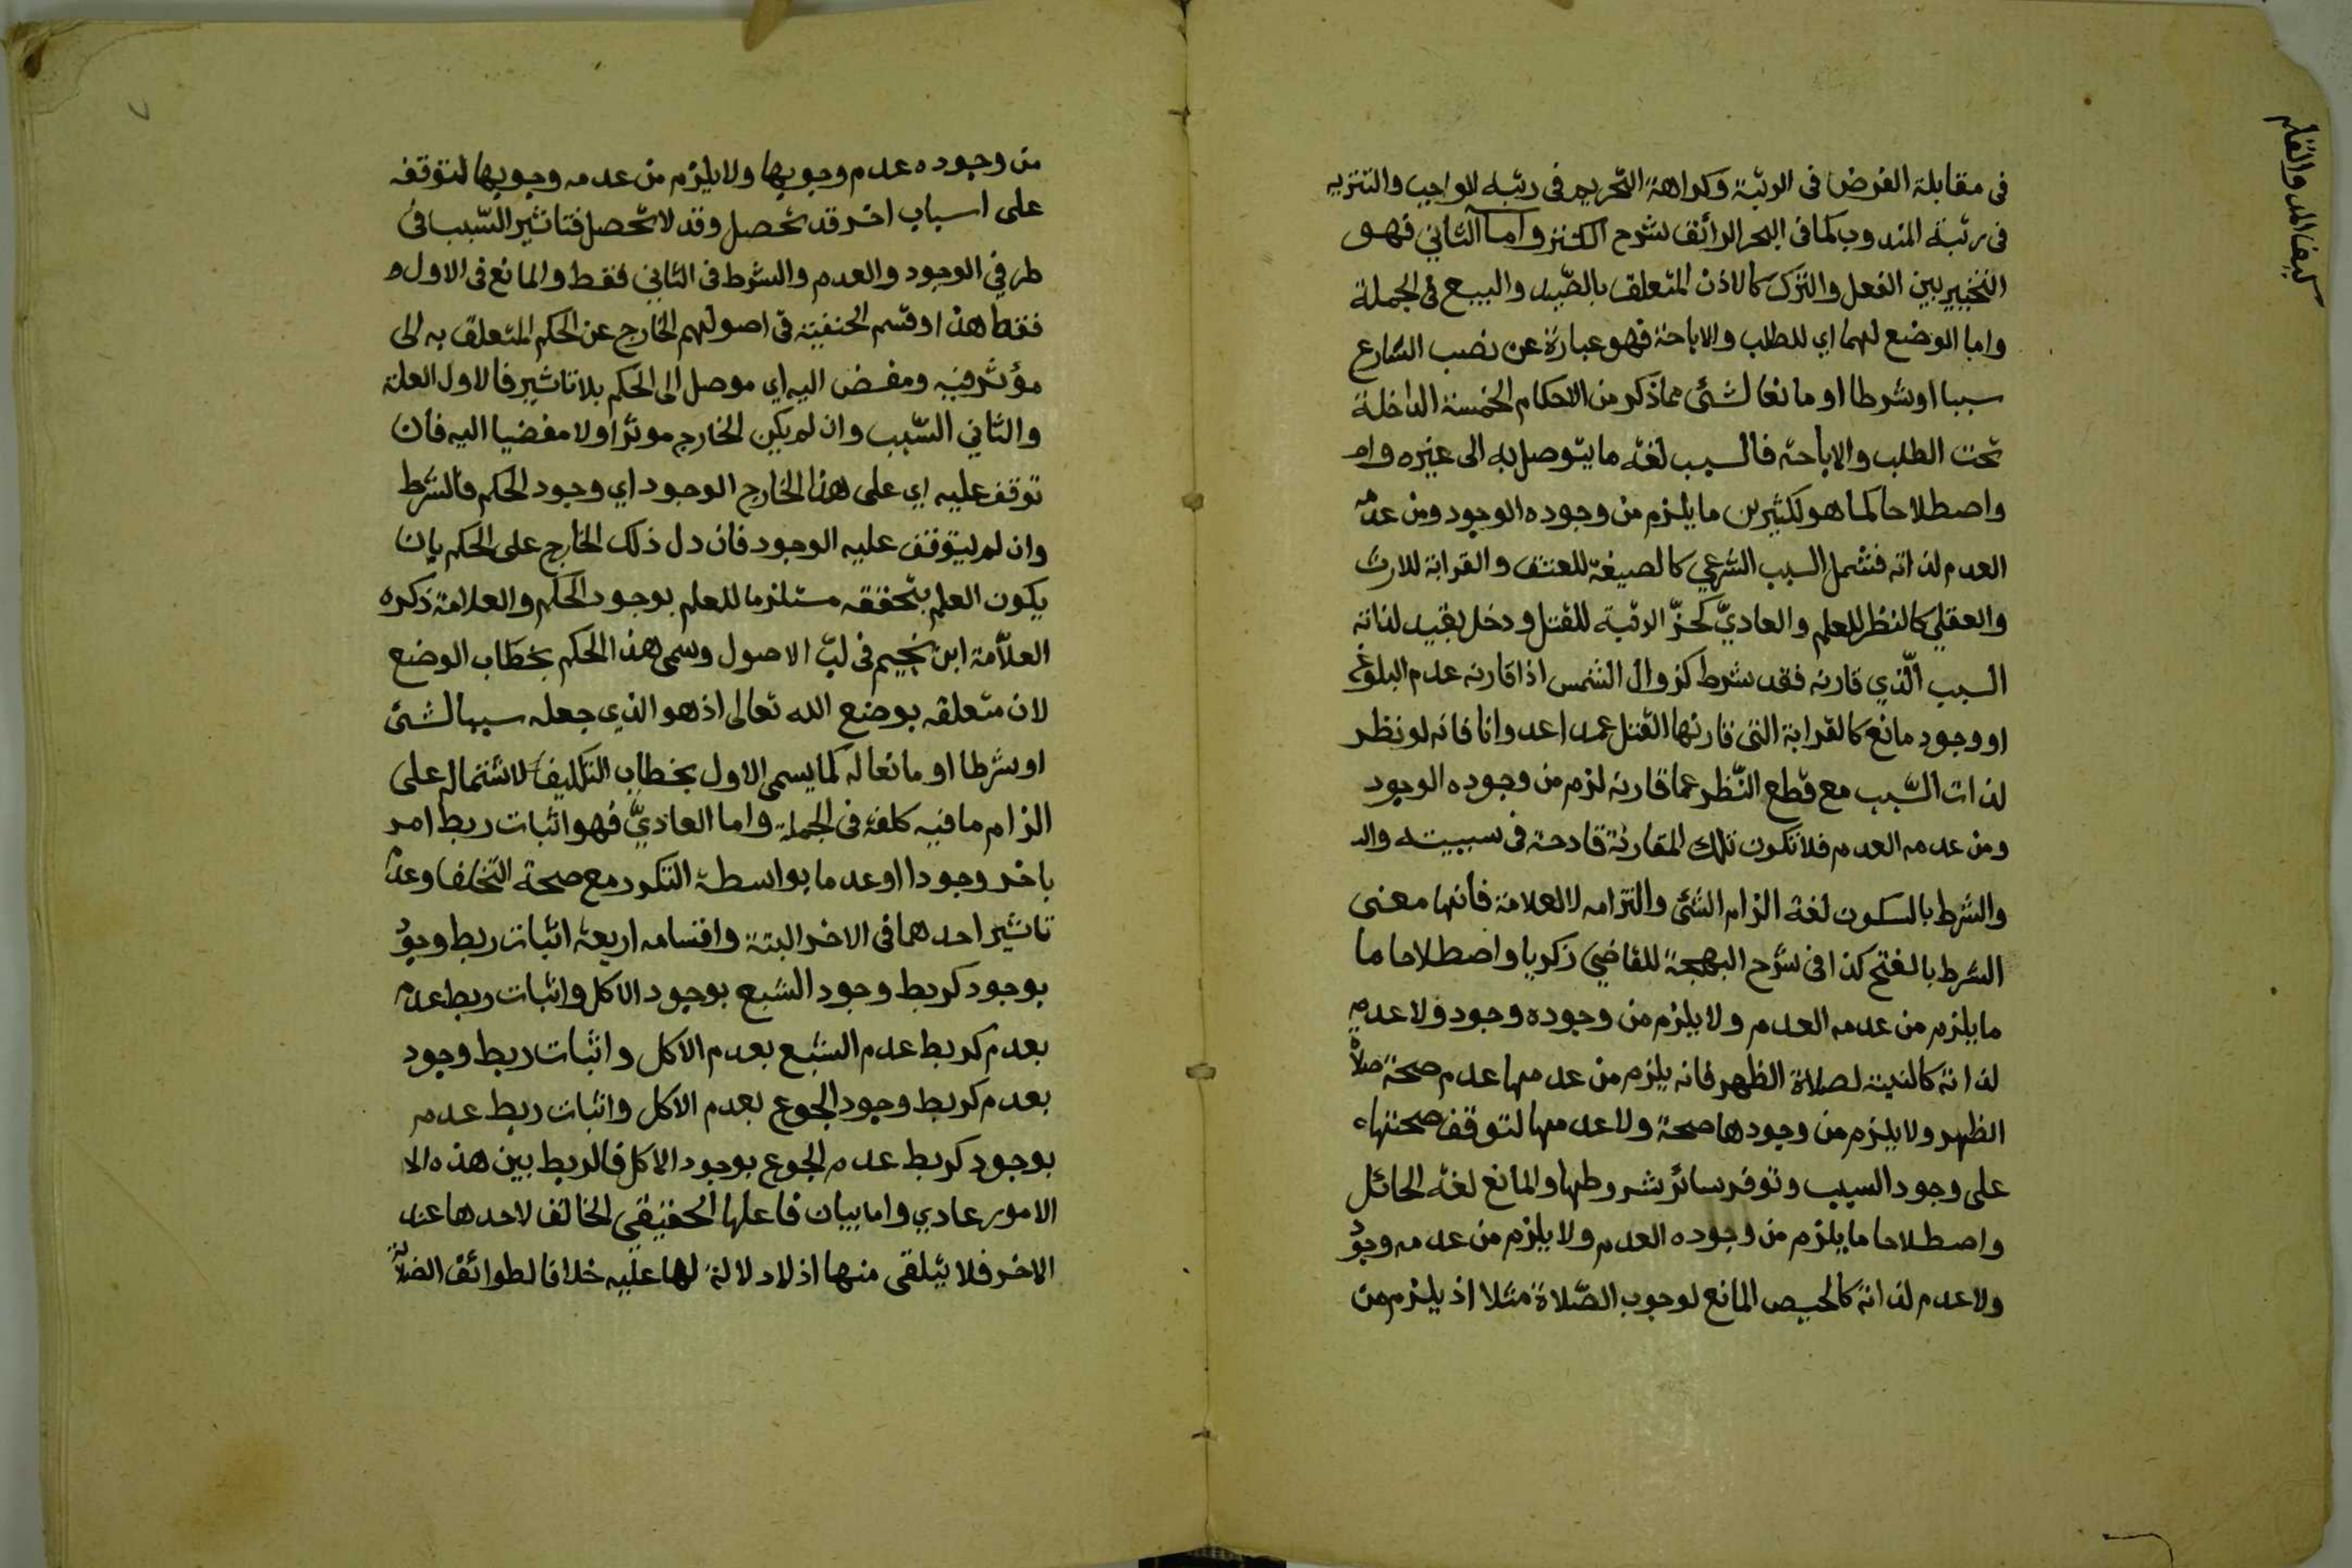 كيف المد والقلم
فى مقابلة الفرض فى الرتبة وكراهة التحريم فى رتبة الواجب والتنزيه
فى رتبة المندوب كما فى البحر الرائق شرح الكنز واما الثاني فهو
التخيير بين الفعل والترك كالاذن المتعلق بالصيد والبيع فى الجملة
واما الوضع لهما اي للطلب والاباحة فهو عبارة عن نصب الشارع
سببا او شرطا او مانعا لشئ مما ذكر من الاحكام الخمسة الداخلة
تحت الطلب والاباحة فالسبب لغة ما يتوصل به الى غيره وا
واصطلاحا كما هو لكثيرين ما يلزم من وجوده الوجود ومن عدمه
العدم لذاته فتشمل السبب الشرعي كالصيغة للعتق والقرابة للارث
والعقلي كالنظر للعلم والعاديّ كحزّ الرقبة للقتل ودخل بقيد لذاته
السبب الّذي قارنه فقد شرط كزوال الشمس اذا قارنه عدم البلوغ
او وجود مانع كالقرابة التى قارنها القتل عمدا عدوانا فانه لو نظر
لذات السّبب مع قطع النّظر عما قارنه لزم من وجوده الوجود
ومن عدمه العدم فلا تكون تلك المقارنة قادحة فى سببيته وال
والشرط بالسكون لغة الزام الشئ والتزامه لا العلامة فانها معنى
الشرط بالفتح كذا فى شرح البهجة للقاضي زكريا واصطلاحا ما
ما يلزم من عدمه العدم ولا يلزم من وجوده وجود ولا عدم
لذاته كالنية لصلاة الظهر فانه يلزم من عدمها عدم صحة صلاة
الظهر ولا يلزم من وجودها صحة ولا عدمها لتوقف صحتها
على وجود السبب وتوفر سائر شروطها والمانع لغة الحائل
واصطلاحا ما يلزم من وجوده العدم ولا يلزم من عدمه وجود
ولا عدم لذاته كالحيض المانع لوجوب الصّلاة مثلا اذ يلزم من
٧
من وجوده عدم وجوبها ولا يلزم من عدمه وجوبها لتوقفه
على اسباب اخر قد تحصل وقد لا تحصل فتاثير السّبب فى
طرفي الوجود والعدم والشرط فى الثاني فقط والمانع فى الاول
فقط هذا وقسم الحنفية فى اصولهم الخارج عن الحكم المتعلق به الى
مؤثر فيه ومفض اليه اي موصل الى الحكم بلا تاثير فالاول العلة
والثاني السّبب وان لم يكن الخارج موثرا ولا مفضيا اليه فان
توقف عليه اي على هذا الخارج الوجود اي وجود الحكم فالشرط
وان لم يتوقف عليه الوجود فان دل ذلك الخارج على الحكم بان
يكون العلم بتحققه مستلزما للعلم بوجود الحكم والعلامة ذكره
العلاّمة ابن نجيم فى لبّ الاصول وسمى هذا الحكم بخطاب الوضع
لان متعلقه بوضع الله تعالى اذ هو الذي جعله سببا لشئ
او شرطا او مانعا له كما يسمى الاول بخطاب التكليف لاشتماله على
الزام ما فيه كلفة فى الجملة واما العاديّ فهو اثبات ربط امر
باخر وجودا او عدما بواسطة التكرر مع صحة التخلف وعدم
تاثير احدهما فى الاخر البتة واقسامه اربعة اثبات ربط وجود
بوجود كربط وجود الشبع بوجود الاكل واثبات ربط عدم
بعدم كربط عدم الشبع بعدم الاكل واثبات ربط وجود
بعدم كربط وجود الجوع بعدم الاكل واثبات ربط عدم
بوجود كربط عدم الجوع بوجود الاكل فالربط بين هذه الا
الامور عادي واما بيان فاعلها الحقيقي الخالق لاحدها عند
الاخر فلا يتلقى منها اذ لا دلالة لها عليه خلافا لطوائف الضلالة